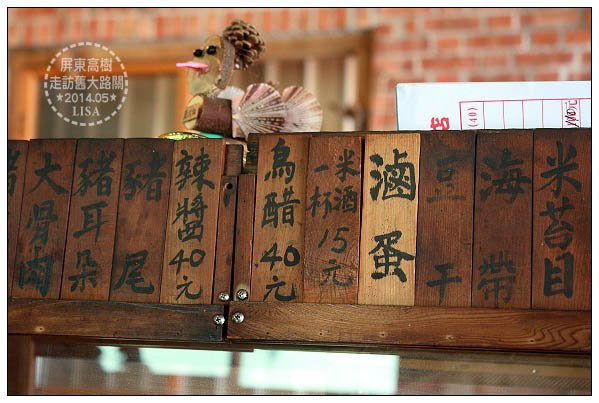 屏東高樹
走訪舊大路關
★2014.05★
LISA
店
(40)
元
豬
大骨肉
豬耳朵
豬尾
辣醬40元
烏醋40元
米酒
一杯15元
滷蛋
豆干
海帶
米苔目